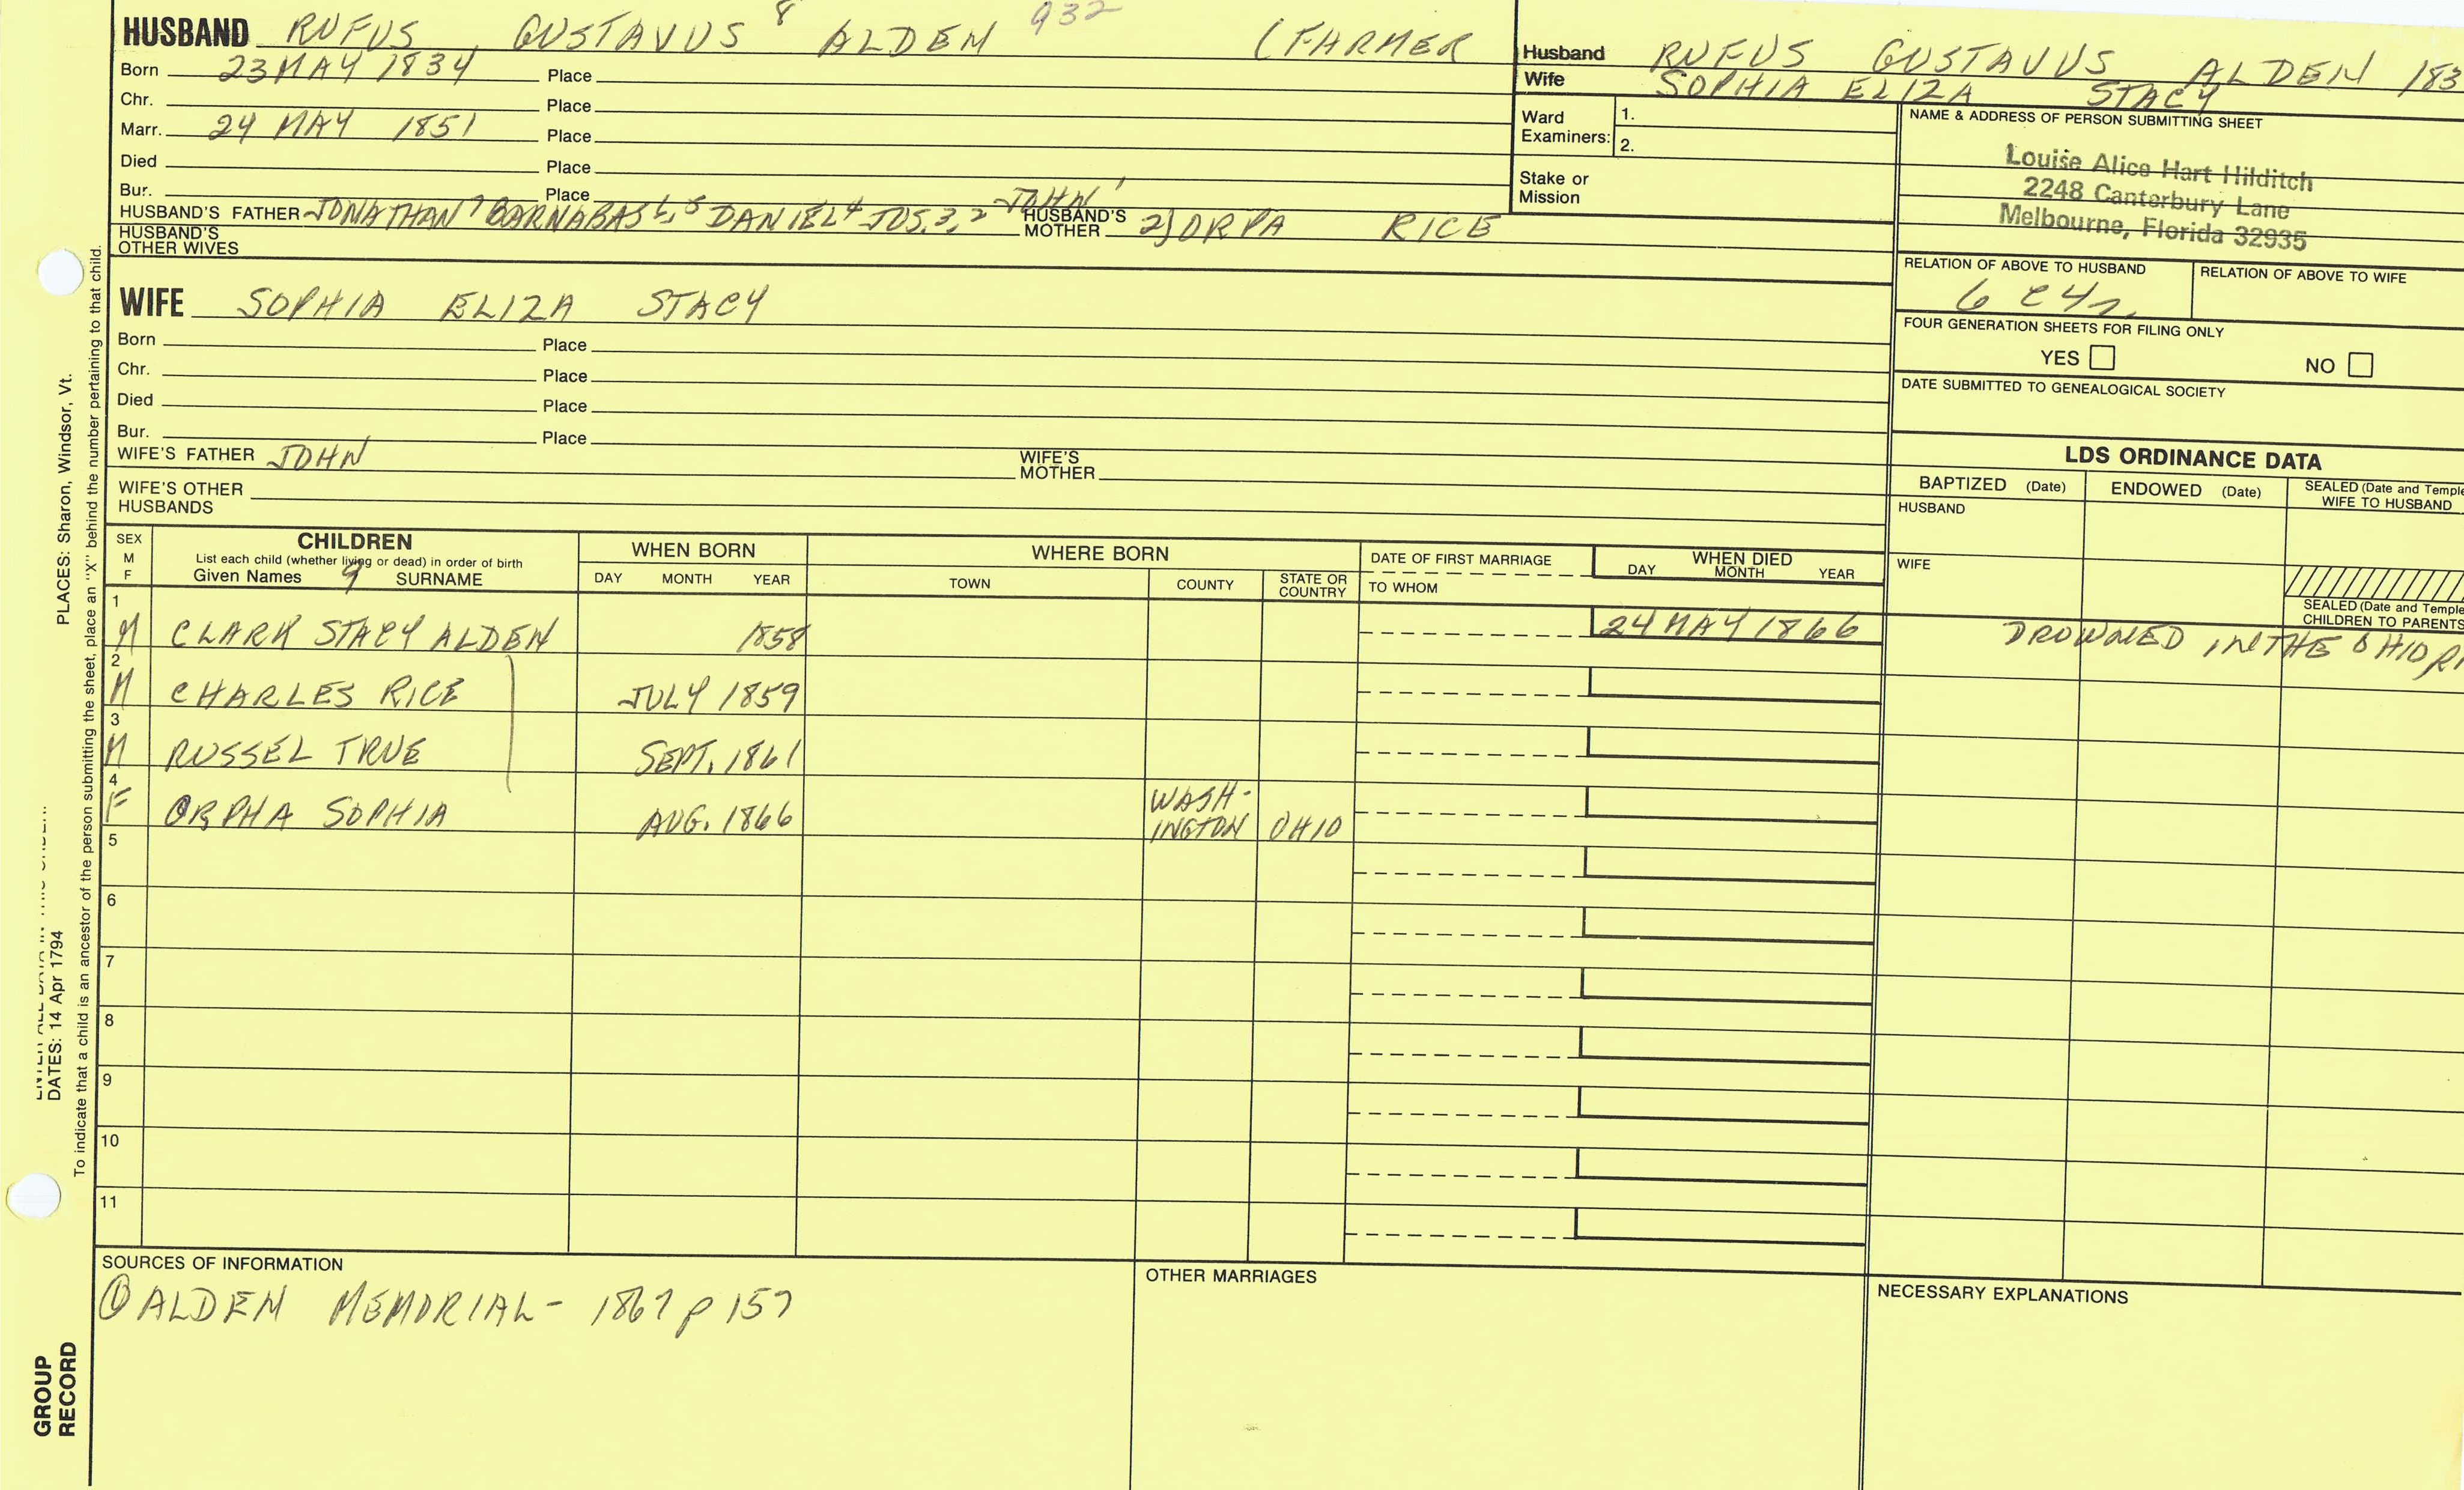 HUSBAND RUFUS GUSTAVUS 8 ALDEN 932 (FARMER
Born 23 MAY 1834 Place
Chr. Place
Marr. 24 MAY 1851 Place
Died Place
Bur. Place
HUSBAND'S FATHER JONATHAN 7 BARNABAS 6,5 DANIEL 4 JOS. 3,2 JOHN 1 HUSBAND'S MOTHER 2) ORPA RICE
HUSBAND'S OTHER WIVES
WIFE SOPHIA ELIZA STACY
Born Place
Chr. Place
Died Place
Bur. Place
WIFE'S FATHER JOHN WIFE'S MOTHER
WIFE'S OTHER HUSBANDS
Husband RUFUS GUSTAVUS ALDEN 183
Wife SOPHIA ELIZA STACY
Ward Examiners: 1.
2.
Stake or Mission
NAME & ADDRESS OF PERSON SUBMITTING SHEET
Louise Alice Hart Hilditch
2248 Canterbury Lane
Melbourne, Florida 32935
RELATION OF ABOVE TO HUSBAND RELATION OF ABOVE TO WIFE
FOUR GENERATION SHEETS FOR FILING ONLY
YES NO
DATE SUBMITTED TO GENEALOGICAL SOCIETY
LDS ORDINANCE DATA
BAPTIZED (Date) ENDOWED (Date) SEALED (Date and Temple
WIFE TO HUSBAND
HUSBAND
WIFE
SEALED (Date and Temple
CHILDREN TO PARENTS
SEX M F
CHILDREN
List each child (whether living or dead) in order of birth
Given Names 9 SURNAME
WHEN BORN
DAY MONTH YEAR
WHERE BORN
TOWN COUNTY STATE OR COUNTRY
DATE OF FIRST MARRIAGE
TO WHOM
WHEN DIED
DAY MONTH YEAR
1 M CLARK STACY ALDEN 1858 24 MAY 1866 DROWNED IN THE OHIO RI
2 M CHARLES RICE JULY 1859
3 M RUSSEL TRUE SEPT. 1861
4 F ORPHA SOPHIA AUG. 1866 WASH-
INGTON OHIO
5
6
7
8
9
10
11
SOURCES OF INFORMATION
① ALDEN MEMORIAL - 1867 p 157
OTHER MARRIAGES
NECESSARY EXPLANATIONS
DATES: 14 Apr 1794 PLACES: Sharon, Windsor, Vt.
To indicate that a child is an ancestor of the person submitting the sheet, place an "X" behind the number pertaining to that child.
GROUP
RECORD